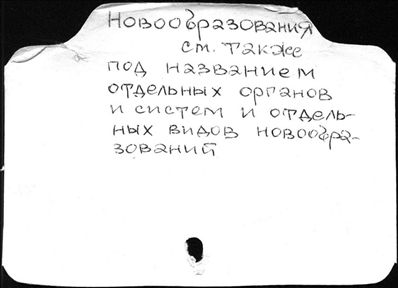 Новообразования
см. также
под названием
отдельных органов
и систем и отдель-
ных видов новообра-
зований